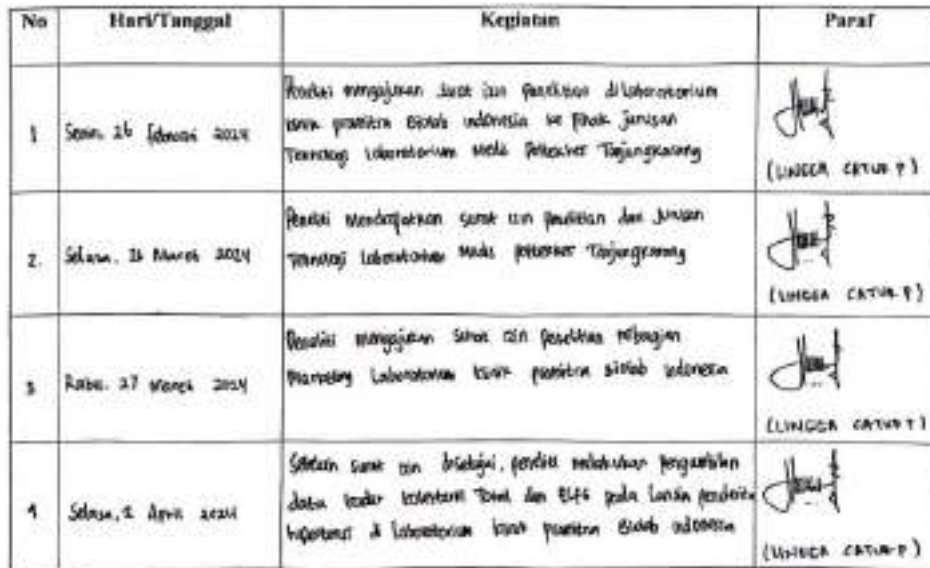 No Hari/Tanggal Kegiatan Paraf
1 Senin, 26 Februari 2024
Peneliti mengajukan surat izin penelitian di laboratorium
klinik pramitra Biolab indonesia ke pihak jurusan
Teknologi Laboratorium Medis Poltekkes Tanjungkarang
(LINGGA CATUR P)
2. Selasa, 26 Maret 2024
Peneliti Mendapatkan surat izin penelitian dari Jurusan
Teknologi Laboratorium Medis Poltekkes Tanjungkarang
(LINGGA CATUR P)
3 Rabu, 27 Maret 2024
Peneliti mengajukan surat izin penelitian
Marketing Laboratorium klinik pramitra biolab indonesia
(LINGGA CATUR P)
4 Selasa, 2 April 2024
Setelah surat izin disetujui, peneliti melakukan pengambilan
data kadar kolesterol Total dan eLFG pada Lansia penderita
hipertensi di laboratorium klinik pramitra Biolab indonesia
(LINGGA CATUR P)